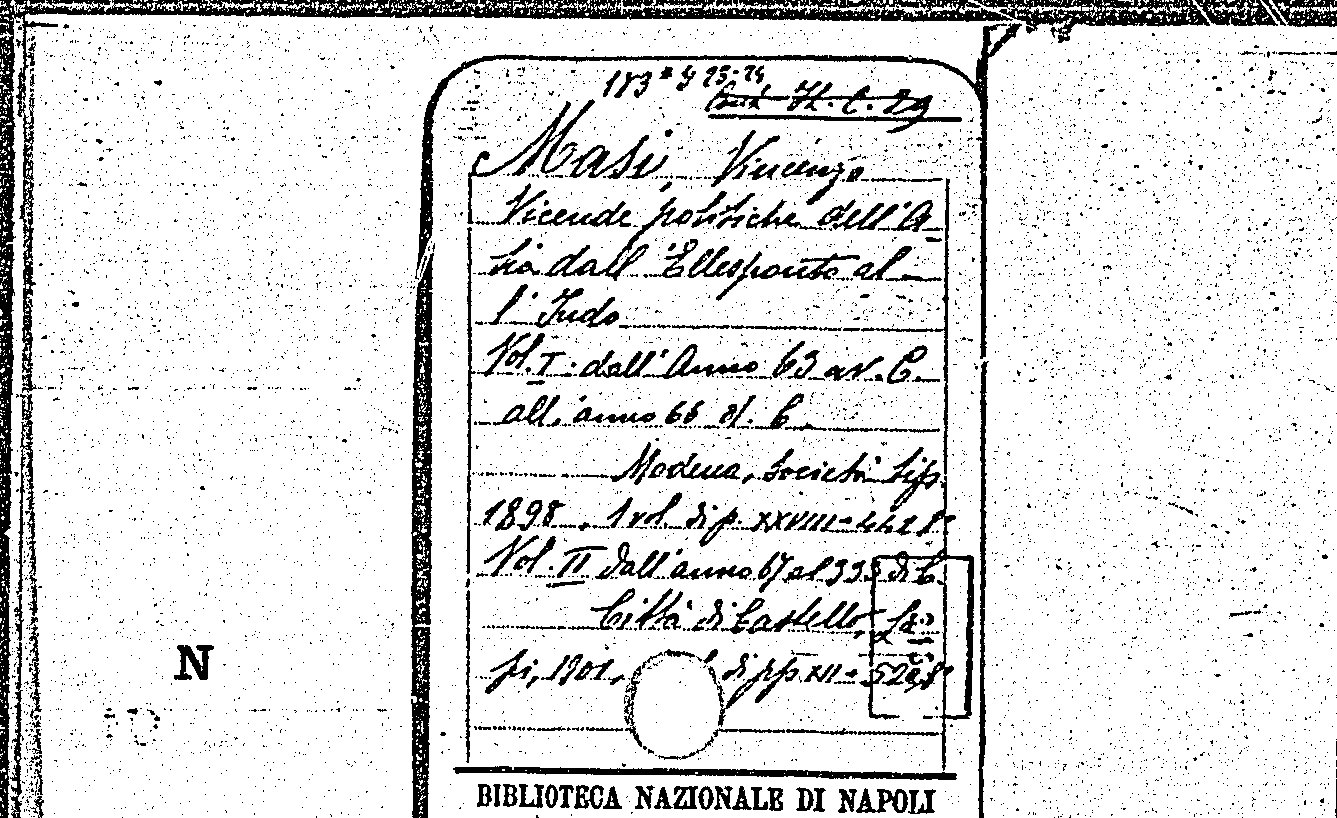 183 * g 25-24
Masi, Vincenzo
Vicende politiche dell'A-
sia dall'Ellesponto al-
l'Indo
Vol. I. dall'Anno 63 av. C.
all'anno 66 d. C.
Modena, Società tip.
1898. 1 vol. di p. XXVIII-442 8º
Vol. II dall'anno 67 al 333 di C.
Città di Castello, La-
pi, 1901, di pp XII- 8º
N
BIBLIOTECA NAZIONALE DI NAPOLI